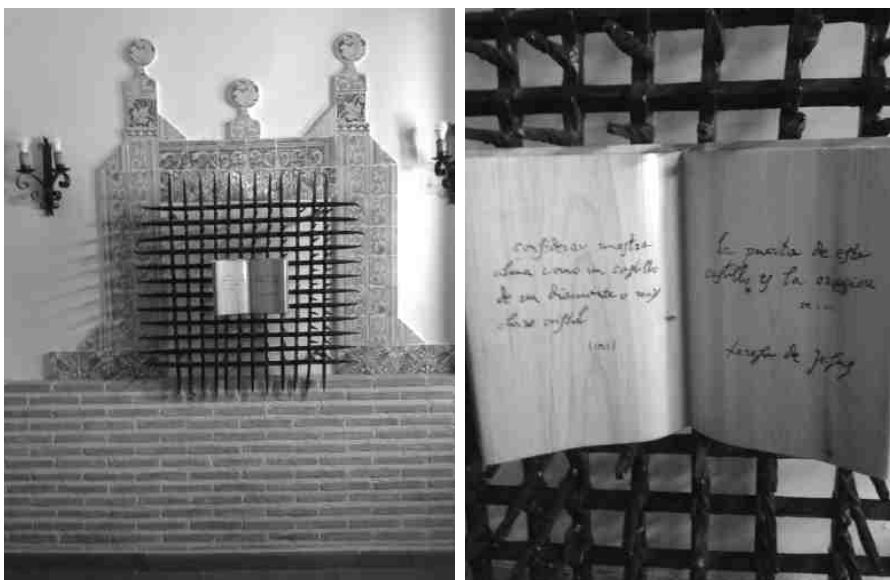 considerar nuestra
alma como un castillo
de un diamante o muy
claro cristal
(1M1)
la puerta de este
castillo es la oracion
teresa de Jesus